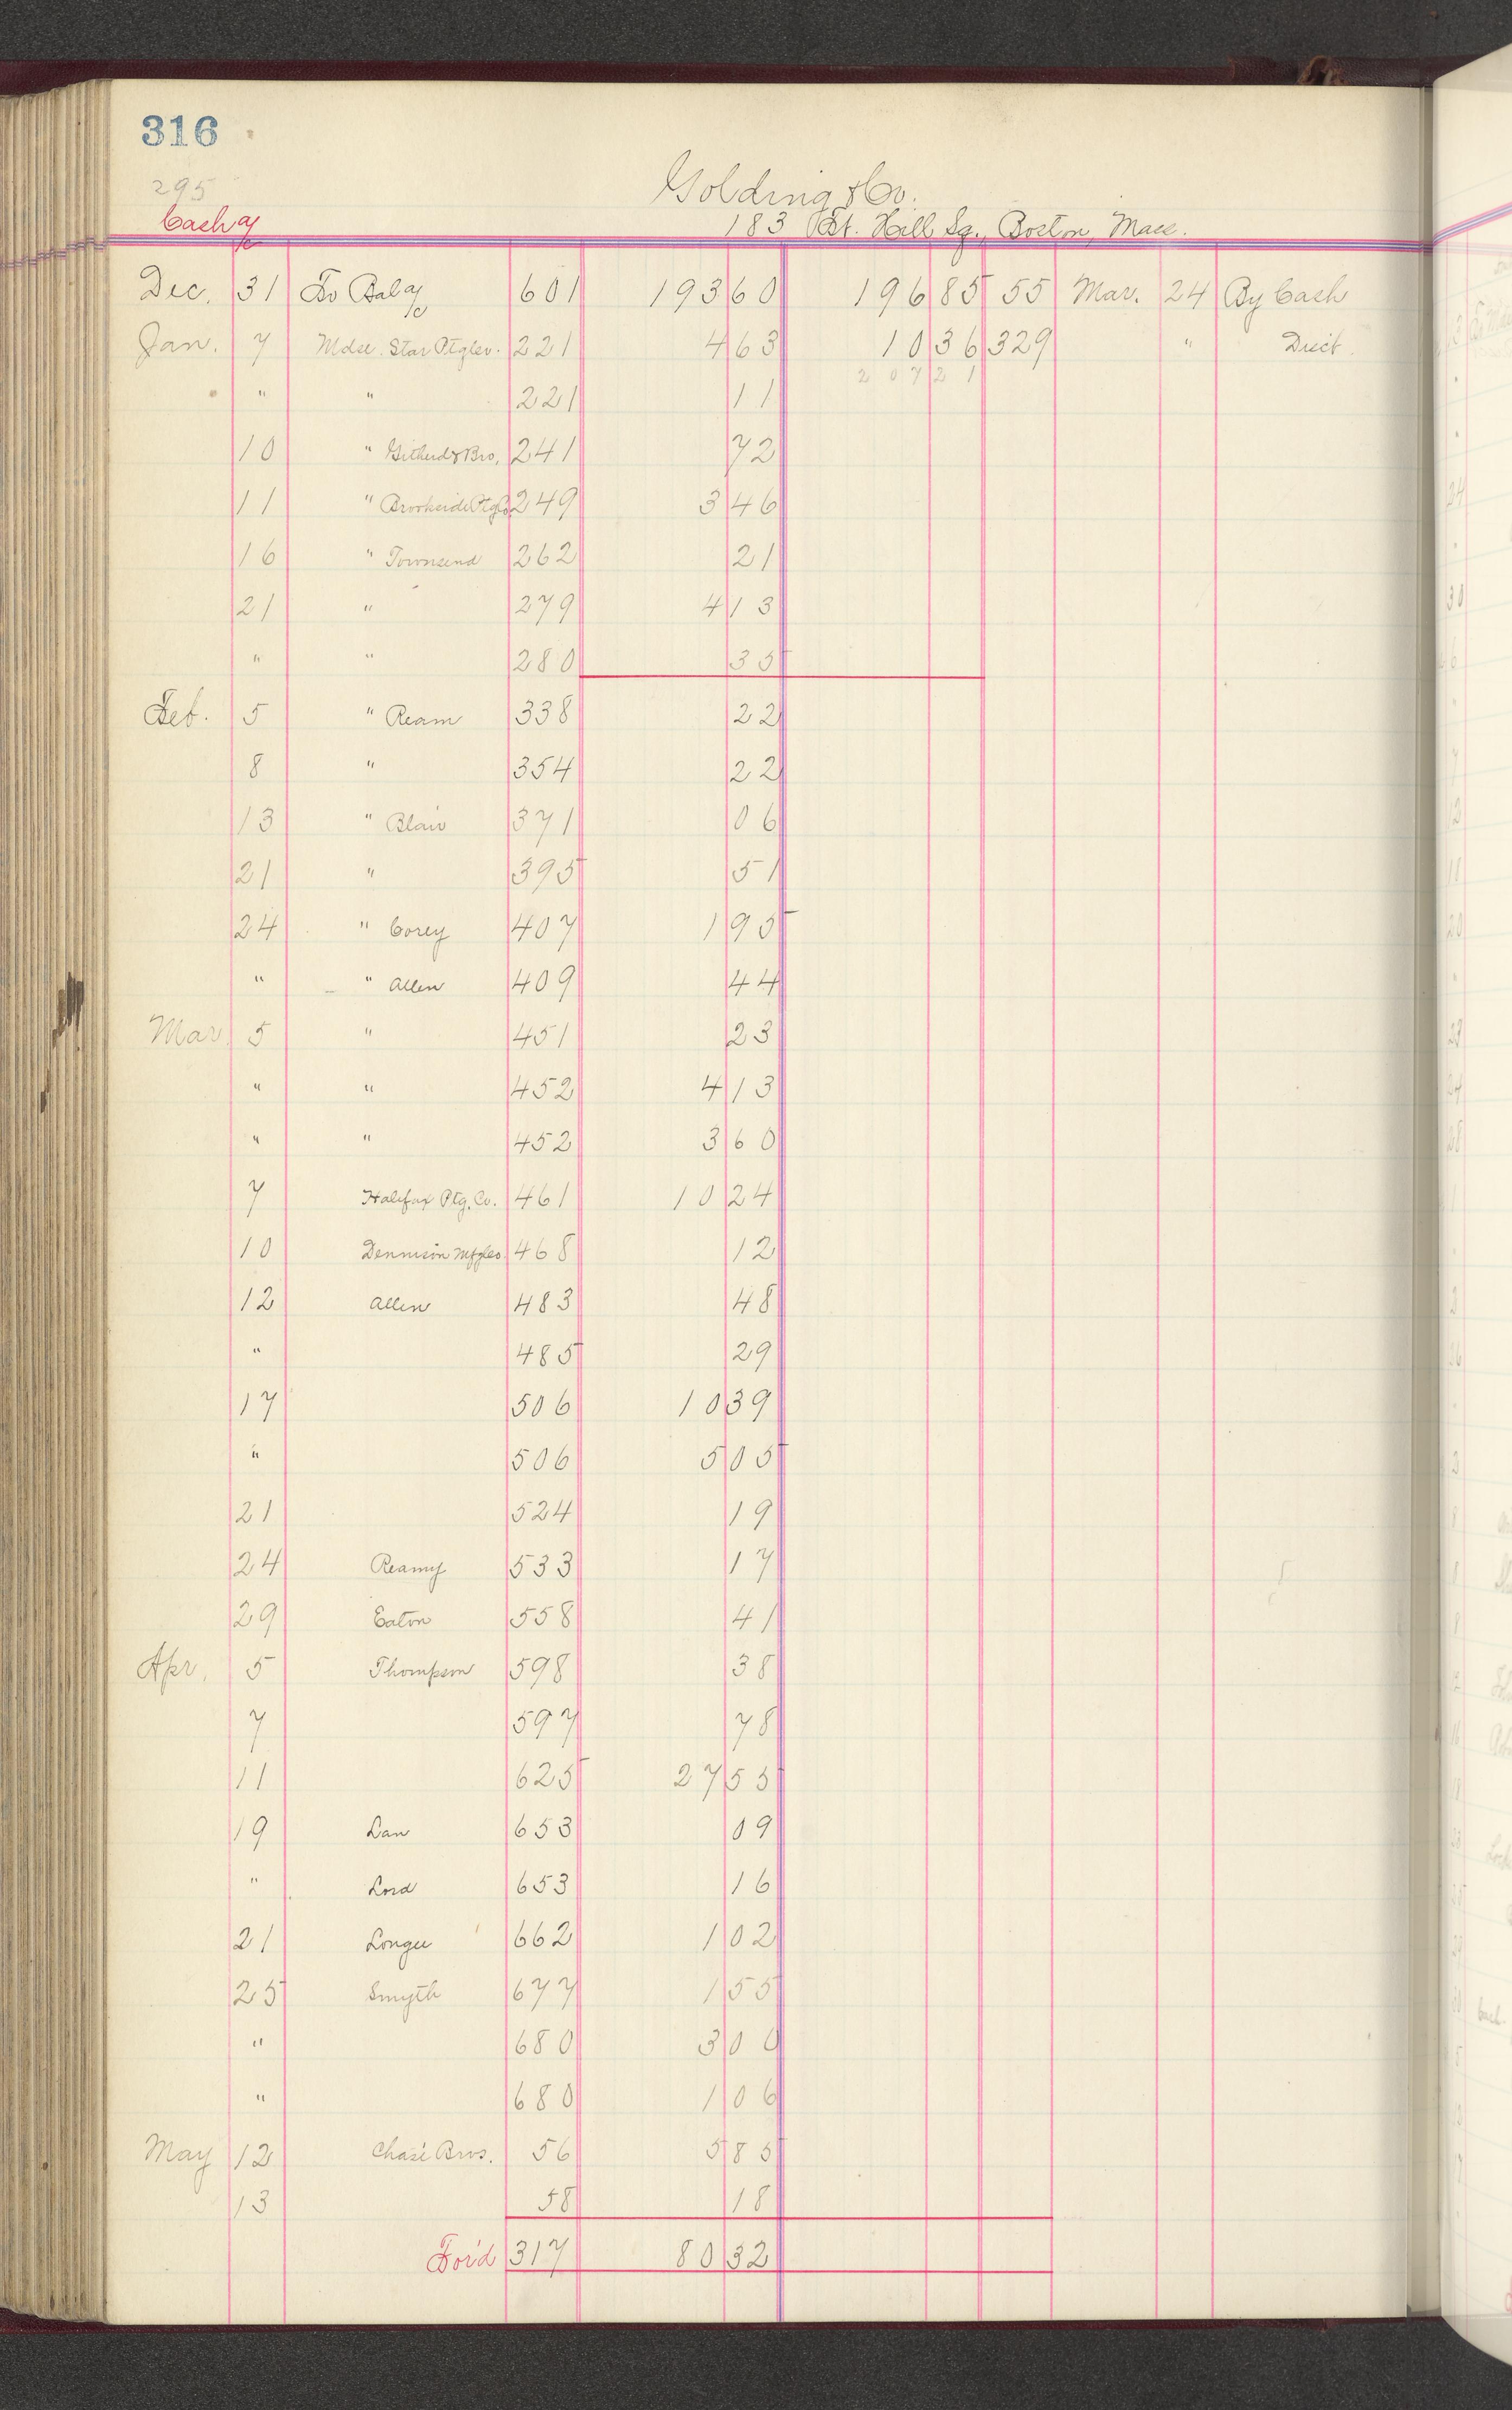 316
295
Golding & Co.
Cash a/c
183 Ft. Hill Sq., Boston, Mass.
Dec. 31 To Bal a/c 601 193 60 196 85 55 Mar. 24 By Cash
Jan. 7 Mdse. Star Ptg Co. 221 4 63 10 36 329 " Disct.
207 21
" " 221 11
10 " & Bro. 241 72
11 " Brookside Ptg Co 249 3 46
16 " Townsend 262 21
21 " 279 4 13
" " 280 35
Feb. 5 " Ream 338 22
8 " 354 22
13 " Blair 371 06
21 " 395 51
24 " Corey 407 1 95
" " Allen 409 44
Mar. 5 " 451 23
" " 452 4 13
" " 452 3 60
7 Halifax Ptg. Co. 461 10 24
10 Dennison Mfg Co. 468 12
12 Allen 483 48
" 485 29
17 506 10 39
" 506 5 05
21 524 19
24 Reamy 533 17
29 Eaton 558 41
Apr. 5 Thompson 598 38
7 597 78
11 625 27 53
19 Lan 653 09
" Lord 653 16
21 Longee 662 1 02
25 Smyth 677 1 55
" 680 3 00
" 680 1 06
May 12 Chase Bros. 56 5 85
13 58 18
For'd 317 80 32